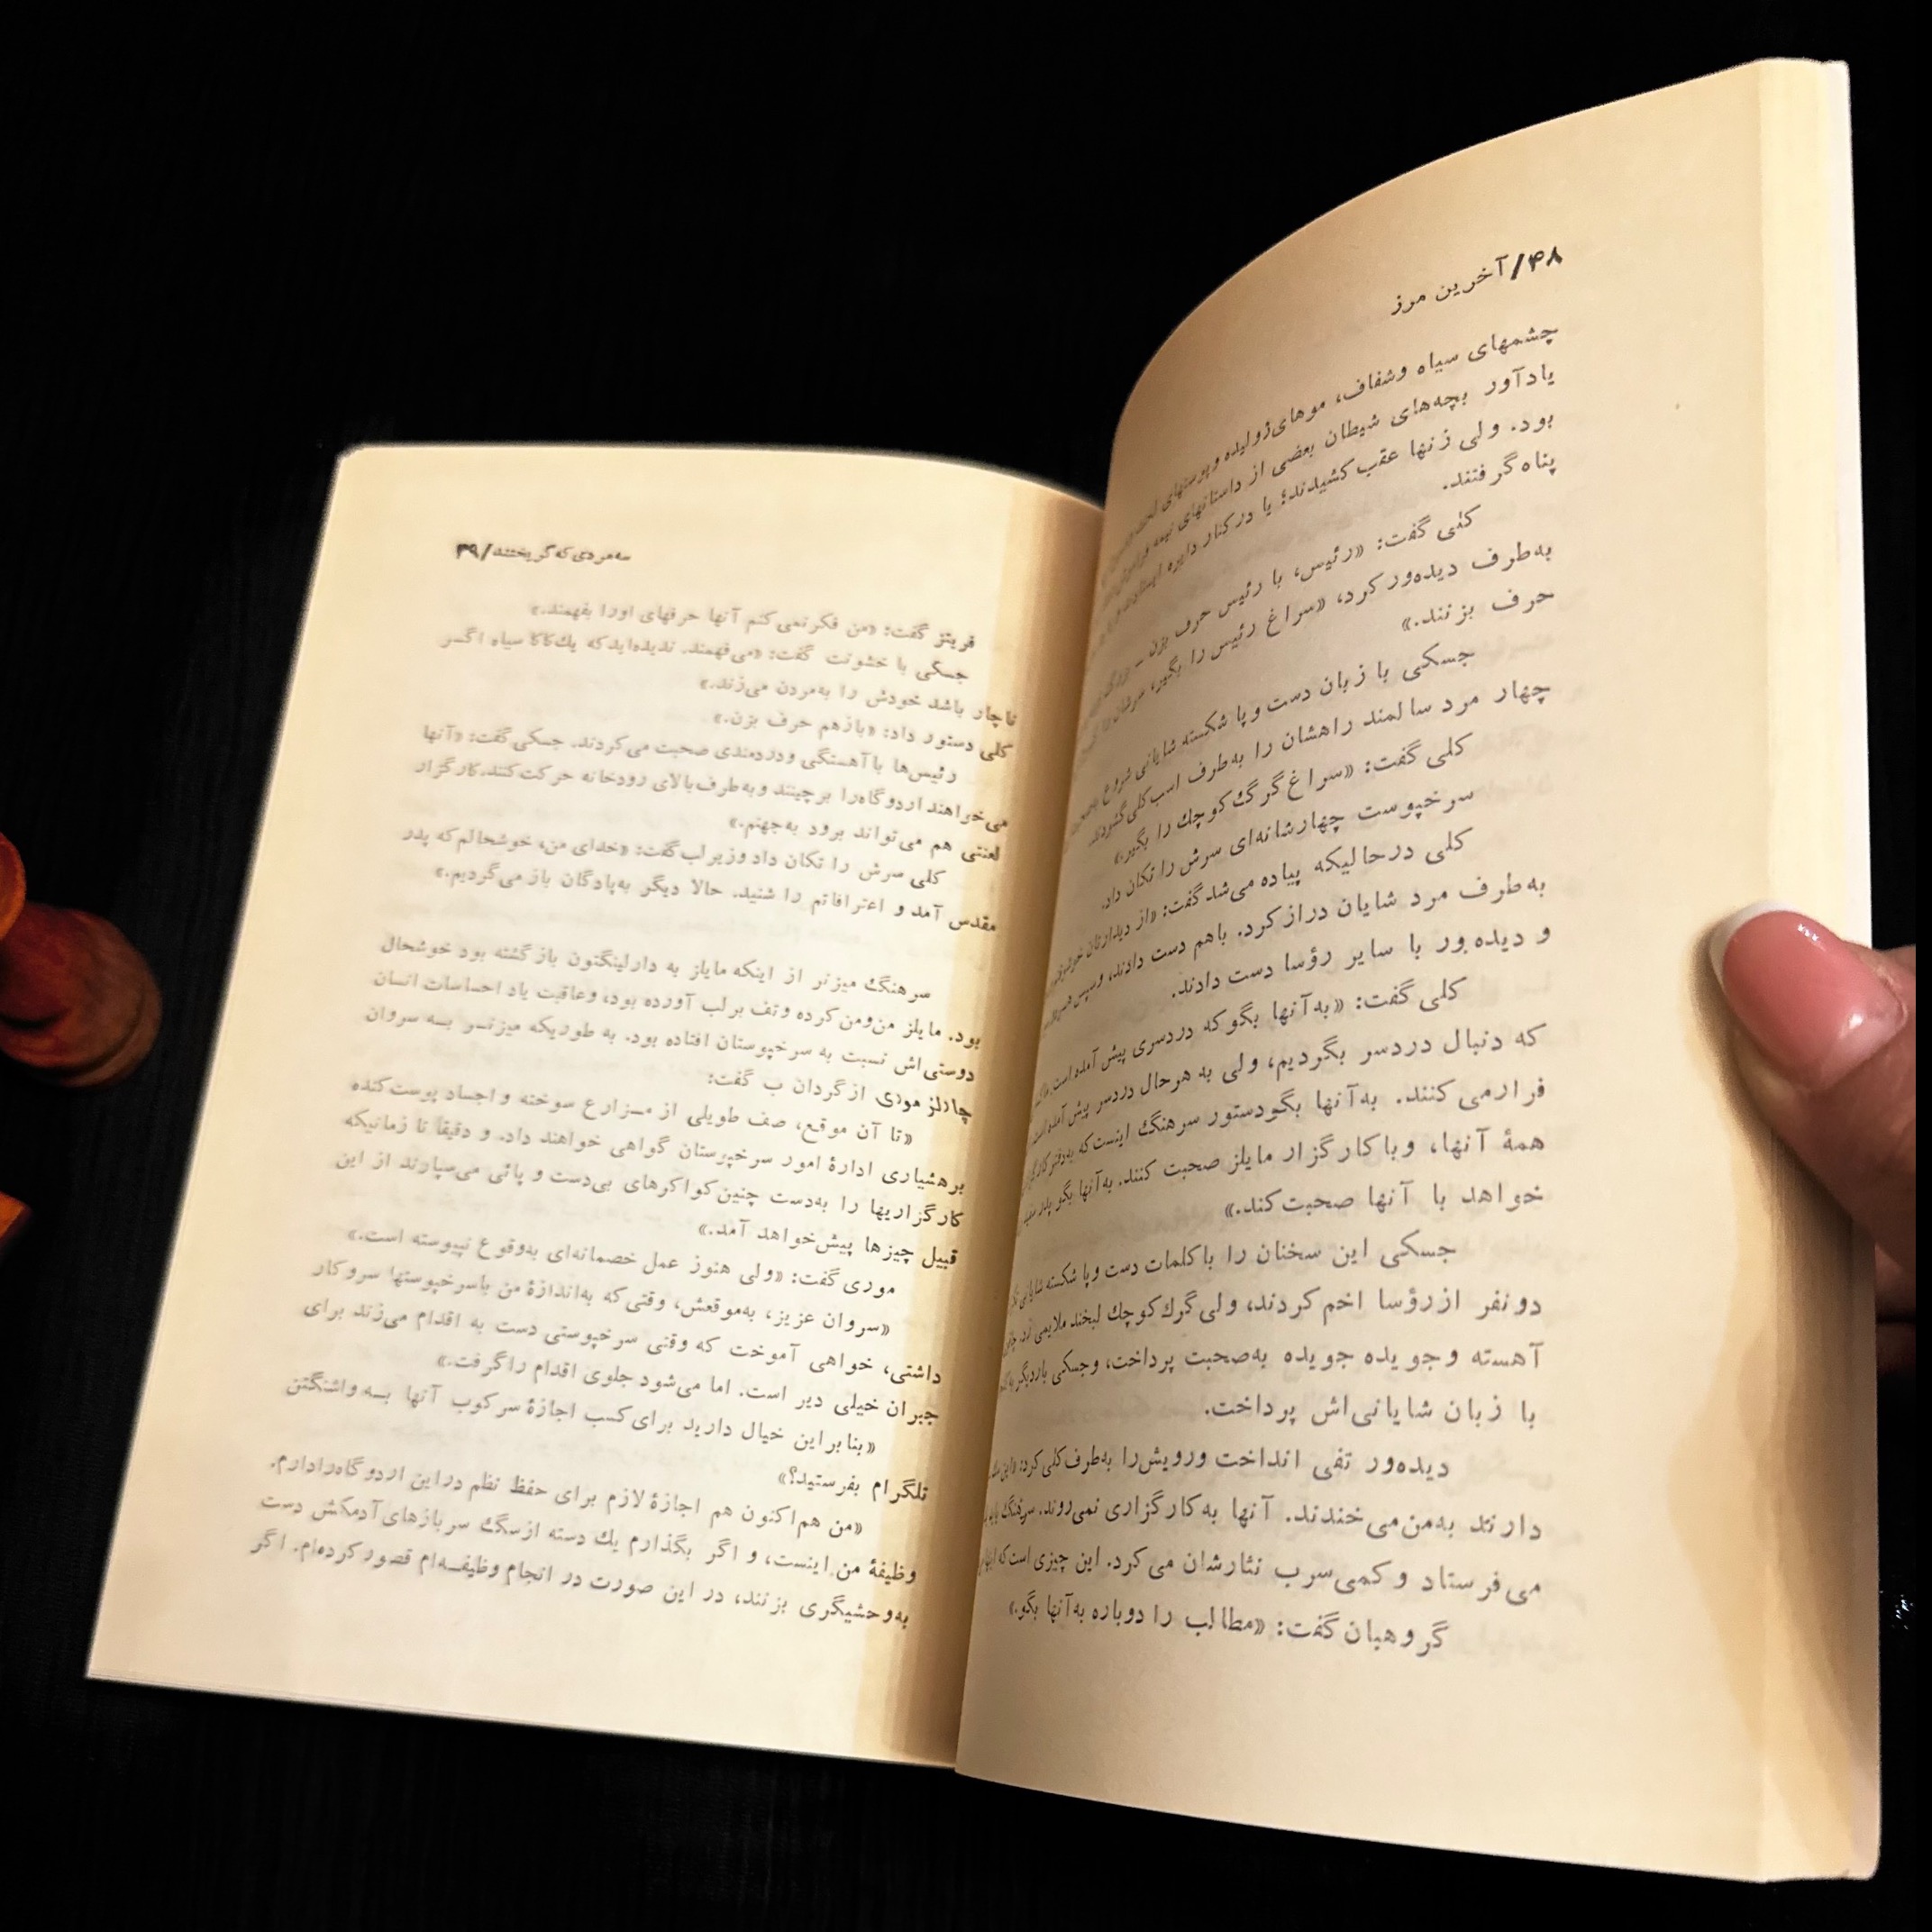 ۴۸/آخرین مرز
چشمهای سیاه وشفاف، موهای ژولیده وپوستهای لخت
یادآور بچه‌های شیطان بعضی از داستانهای نیمه
بود. ولی زنها عقب کشیدند؛ یا درکنار دایره ایستادند و
پناه گرفتند.
کلی گفت: «رئیس، با رئیس حرف بزن ــ بزرگ
به‌طرف دیده‌ور کرد، «سراغ رئیس را بگیر، سرشان
حرف بزنند.»
جسکی با زبان دست وپا شکسته شایانی شروع
چهار مرد سالمند راهشان را به‌طرف اسب کلی گشودند.
کلی گفت: «سراغ گرگ کوچک را بگیر.»
سرخپوست چهارشانه‌ای سرش را تکان داد.
کلی درحالیکه پیاده می‌شد گفت: «از دیدارتان خوشوقتم
به‌طرف مرد شایان دراز کرد. باهم دست دادند، وسپس
و دیده‌ور با سایر رؤسا دست دادند.
کلی گفت: «به‌آنها بگو که دردسری پیش آمده است.
که دنبال دردسر بگردیم، ولی به هرحال دردسر پیش آمده است
فرارمی‌کنند. به‌آنها بگودستور سرهنگ اینست که به‌دفتر
همهٔ آنها، وباکارگزار مایلز صحبت کنند. به‌آنها بگو پدر
خواهد با آنها صحبت‌کند.»
جسکی این سخنان را باکلمات دست وپا شکسته شایانی
دونفر ازرؤسا اخم کردند، ولی گرگ کوچک لبخند ملایمی زد،
آهسته وجویده جویده به‌صحبت پرداخت، وجسکی باردیگر
با زبان شایانی‌اش پرداخت.
دیده‌ور تفی انداخت ورویش‌را به‌طرف‌کلی‌کرد:
دارند به‌من‌می‌خندند. آنها به‌کارگزاری نمی‌روند. سرهنگ باید
می‌فرستاد و کمی‌سرب نثارشان می‌کرد. این چیزی است‌که
گروهبان گفت: «مطالب را دوباره به‌آنها بگو.»
سه‌مردی که گریختند/۴۹
فریتز گفت: «من فکرنمی‌کنم آنها حرفهای اورا بفهمند.»
جسکی با خشونت گفت: «می‌فهمند. ندیده‌اید که یك‌کاکا سیاه اگر
ناچار باشد خودش را به‌مردن می‌زند.»
کلی دستور داد: «بازهم حرف بزن.»
رئیس‌ها باآهستگی ودردمندی صحبت می‌کردند. جسکی‌گفت: «آنها
می‌خواهند اردوگاه‌را برچینند وبه‌طرف‌بالای رودخانه حرکت‌کنند.کارگزار
لعنتی هم می‌تواند برود به‌جهنم.»
کلی سرش را تکان داد وزیرلب‌گفت: «خدای من، خوشحالم‌که پدر
مقدس آمد و اعترافاتم را شنید. حالا دیگر به‌پادگان بازمی‌گردیم.»
سرهنگ میزنر از اینکه مایلز به دارلینگتون بازگشته بود خوشحال
بود. مایلز من‌ومن‌کرده وتف برلب آورده بود، وعاقبت یاد احساسات انسان
دوستی‌اش نسبت به سرخپوستان افتاده بود. به طوریکه میزنر به سروان
چارلز موری ازگردان ب گفت:
«تا آن موقع، صف طویلی از مزارع سوخته واجساد پوست‌کنده
برهشیاری ادارهٔ امور سرخپوستان گواهی خواهند داد. و دقیقاً تا زمانیکه
کارگزاریها را به‌دست چنین‌کواکرهای بی‌دست و پائی می‌سپارند از این
قبیل چیزها پیش‌خواهد آمد.»
موری گفت: «ولی هنوز عمل خصمانه‌ای به‌وقوع نپیوسته است.»
«سروان عزیز، به‌موقعش، وقتی‌که به‌اندازهٔ من باسرخپوستها سروکار
داشتی، خواهی آموخت که وقتی سرخپوستی دست به اقدام می‌زند برای
جبران خیلی دیر است. اما می‌شود جلوی اقدام راگرفت.»
«بنابراین خیال دارید برای‌کسب اجازهٔ سرکوب آنها به واشنگتن
تلگرام بفرستید؟»
«من هم‌اکنون هم اجازهٔ لازم برای حفظ نظم دراین اردوگاه‌رادارم.
وظیفهٔ من اینست، و اگر بگذارم یك دسته ازسگ سربازهای‌آدمکش دست
به‌وحشیگری بزنند، در این صورت در انجام وظیفه‌ام قصورکرده‌ام. اگر